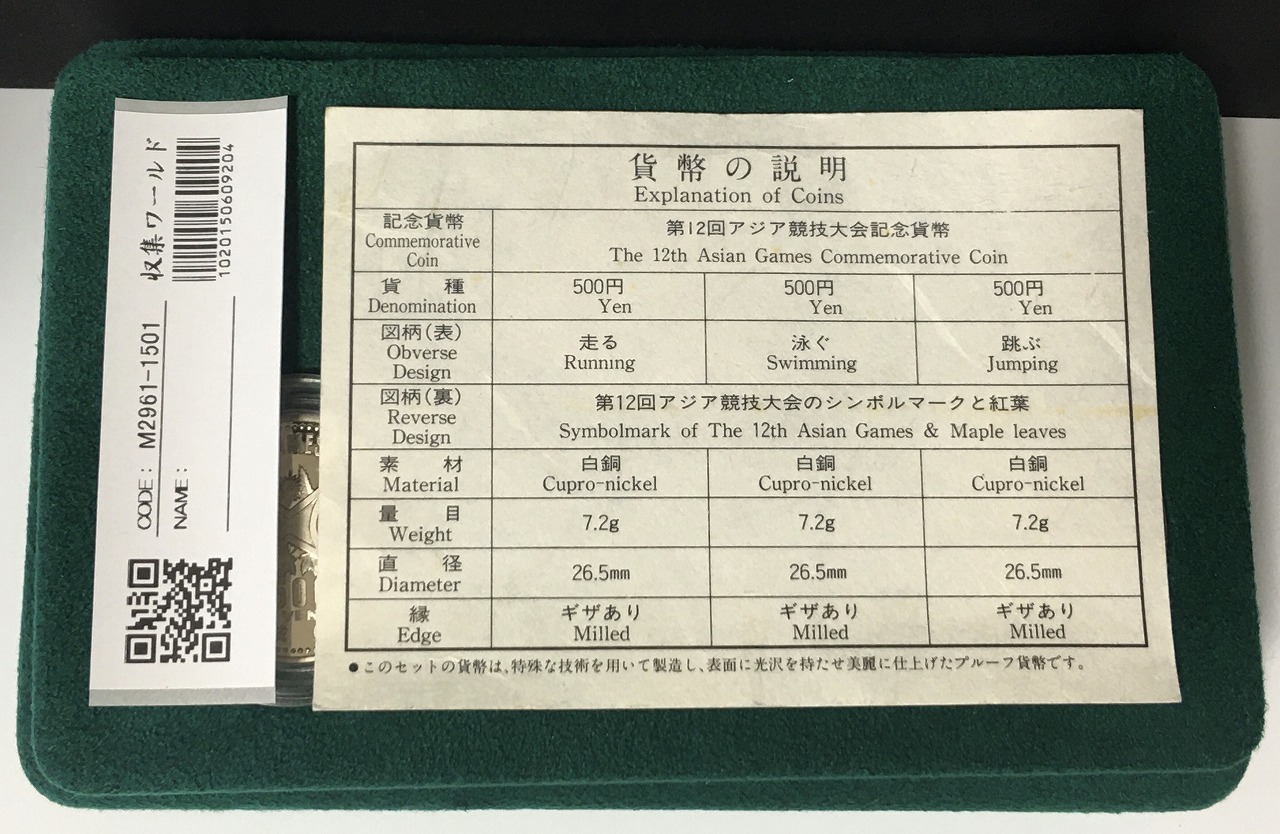 収集ワールド
1020150609204
CODE: M2961-1501
NAME:
貨幣の説明
Explanation of Coins
記念貨幣
Commemorative
Coin
第12回アジア競技大会記念貨幣
The 12th Asian Games Commemorative Coin
貨種
Denomination
500円
Yen
500円
Yen
500円
Yen
図柄(表)
Obverse
Design
走る
Running
泳ぐ
Swimming
跳ぶ
Jumping
図柄(裏)
Reverse
Design
第12回アジア競技大会のシンボルマークと紅葉
Symbolmark of The 12th Asian Games & Maple leaves
素材
Material
白銅
Cupro-nickel
白銅
Cupro-nickel
白銅
Cupro-nickel
量目
Weight
7.2g
7.2g
7.2g
直径
Diameter
26.5mm
26.5mm
26.5mm
縁
Edge
ギザあり
Milled
ギザあり
Milled
ギザあり
Milled
●このセットの貨幣は、特殊な技術を用いて製造し、表面に光沢を持たせ美麗に仕上げたプルーフ貨幣です。